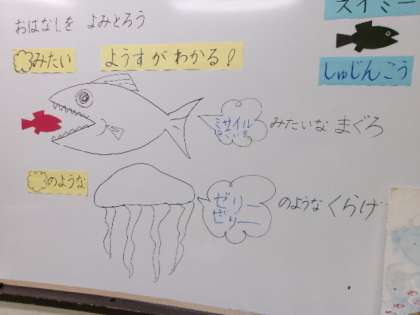 おはなしを よみとろう
スイミー
みたい ようすがわかる!
しゅじんこう
ミサイル
みたいな まぐろ
のような
ゼリー
ぜりー
のような くらげ